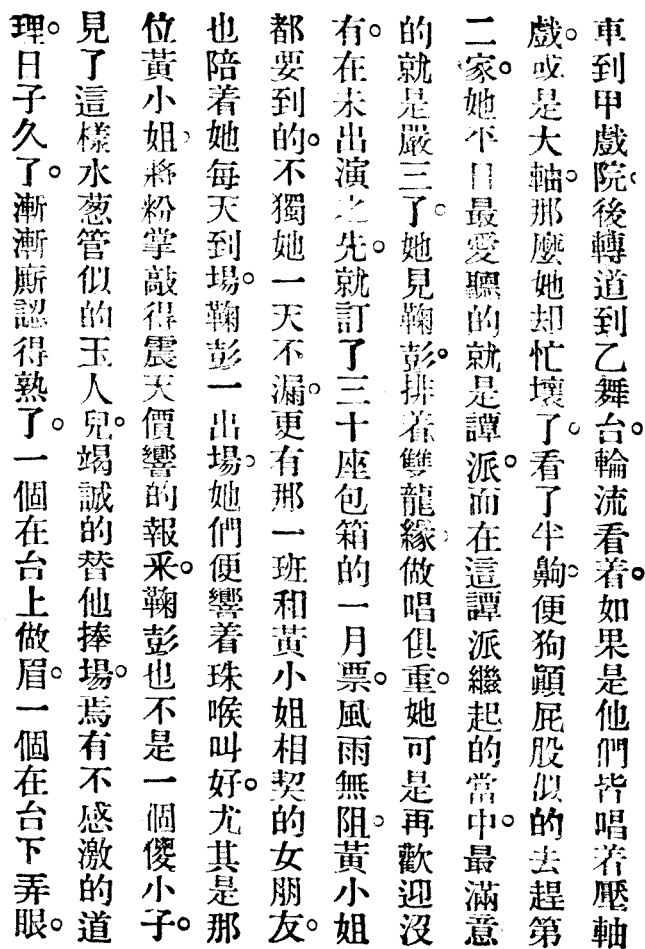 車到甲戲院。後轉道到乙舞台。輪流看着。如果是他們皆唱若壓軸
戲。或是大軸。那麼她却忙壞了。看了半齣。便狗顚屁股似的去趕第
二家。她平日最愛聽的就是譚派。而在這譚派繼起的當中。最滿意
的就是嚴三了。她見鞠彭。排着雙龍緣。做唱俱重。她可是再歡迎沒
有。在未出演之先。就訂了三十座包箱的一月票。風雨無阻。黃小姐
都要到的。不獨她一天不漏。更有那一班和黃小姐相契的女朋友。
也陪着她每天到場。鞠彭一出場。她們便響着珠喉叫好。尤其是那
位黃小姐。將粉掌敲得震天價響的報釆。鞠彭也不是一個傻小子。
見了這樣水葱管似的玉人兒。竭誠的替他捧場。焉有不感激的道
理。日子久了。漸漸廝認得熟了。一個在台上做眉。一個在台下弄眼。